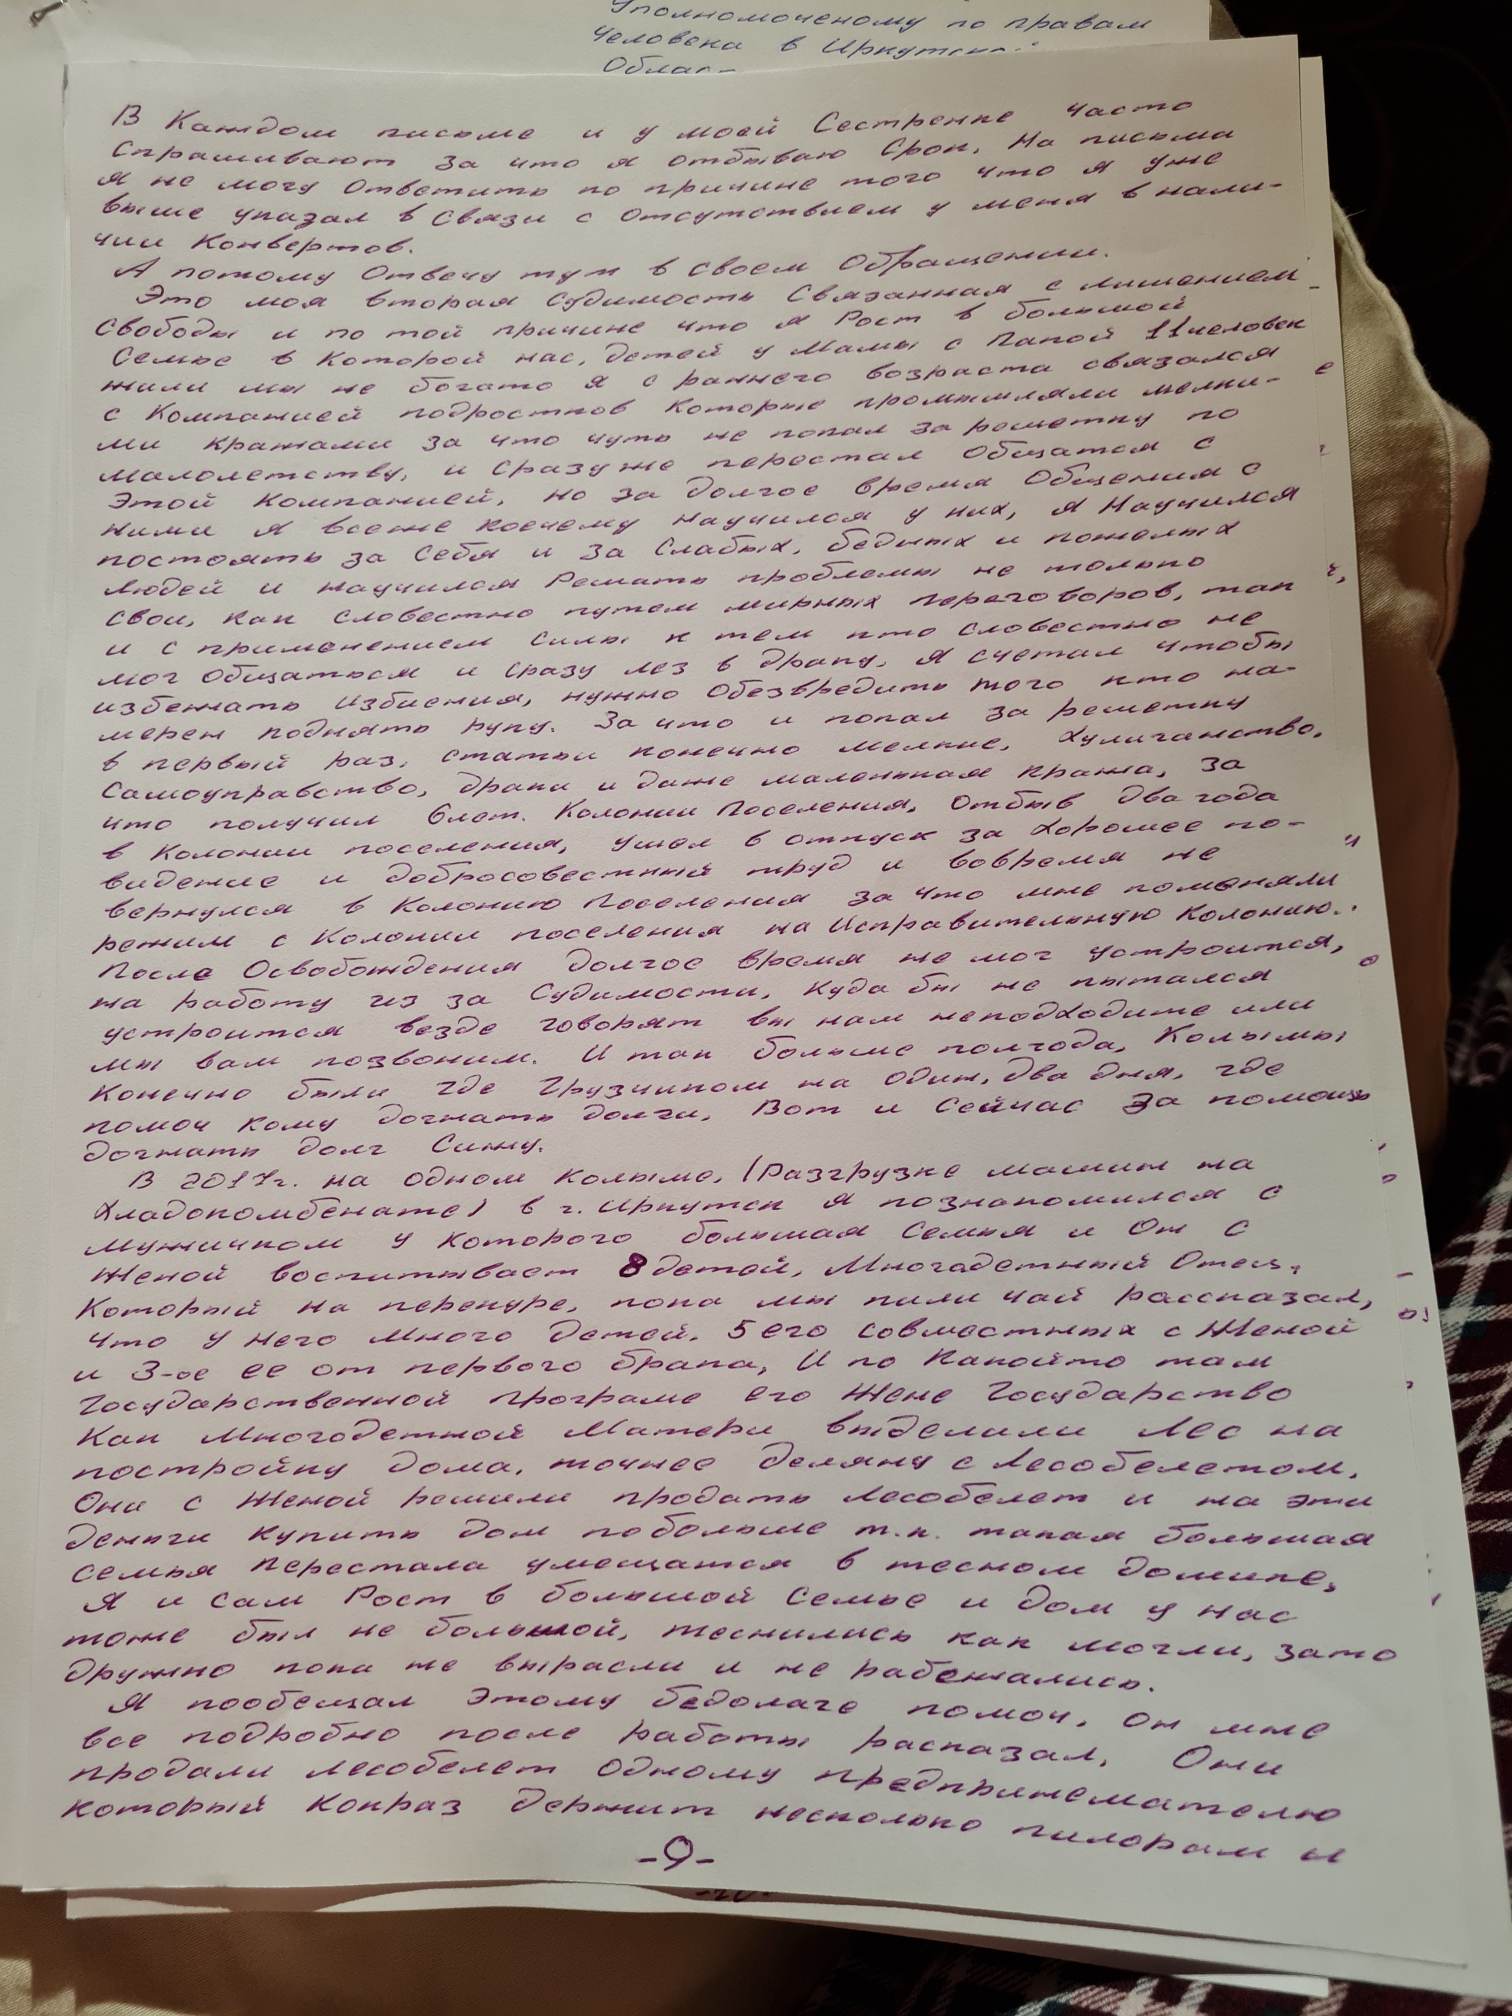 Уполномоченому по правам
Человека в Иркутской
Облас
В Каждом письме и у моей Сестренке часто
спрашивают за что я отбываю Срок. На письма
я не могу Ответить по причине того что я уже
выше указал в связи с отсутствием у меня в нали-
чии Конвертов.
А потому Отвечу тут в своем Обращении.
Это моя вторая Судимость Связанная с лишением
Свободы и по той причине что я Рос в большой
Семье в Которой нас, детей у Мамы с Папой 11человек
жили мы не богато я с раннего возраста связался
с Компанией подростков Которые промышляли мелки-
ми кражами за что чуть не попал за решетку по
малолетству, и сразу же перестал Общатся с
Этой Компанией, но за долгое время Общения с
ними я всеже коечему научился у них, я Научился
постоять за Себя и за Слабых, бедных и пожелых
людей и научился Решать проблемы не только
свои, как словестно путем мирных переговоров, так
и с применением силы к тем кто словестно не
мог Общаться и сразу лез в драку. Я счетал чтобы
избежать избиения, нужно Обезвредить того кто на-
мерен поднять руку. За что и попал за решетку
в первый раз, статьи конечно мелкие. Хулиганство,
Самоуправство, драки и даже маленькая кража, за
что получил 6лет. Колонии Поселения, Отбыв два года
в Колонии поселения, ушел в отпуск за хорошее по-
видение и добросовестный труд и вовремя не
вернулся в Колонию Поселения за что мне поменяли
режим с Колонии поселения на Исправительную Колонию.
После Освобождения долгое время не мог устроится,
на работу из за Судимости, Куда бы не пытался
устроится везде говорят вы нам неподходите или
мы вам позвоним. И так больше полгода, Колымы
Конечно были где Грузчиком на один, два дня, где
помоч кому догнать долги, Вот и Сейчас за помощь
догнать долг Сижу.
В 2017г. на одном Колыме, (Разгрузке машин на
Хладокомбенате) в г. Иркутск я познакомился с
мужичком у которого большая Семья и Он с
Женой воспитывает 8детей, Многадетный Отец,
Который на перекуре, пока мы пили чай рассказал,
что у него много детей. 5 его совместных с Женой
и 3-ое ее от первого брака, И по Какойто там
Государственной програме его Жене Государство
Как Многодетной Матери выделили Лес на
постройку дома, точнее деляну с Лесобелетом,
Они с Женой решили продать Лесобелет и на эти
деньги купить дом побольше т.к. такая большая
семья перестала умещатся в тесном домике,
Я и сам Рос в большой Семье и дом у нас
тоже был не большой, теснились как могли, зато
дружно пока не выросли и не разбежались.
Я пообещал этому бедолаге помоч, он мне
все подробно после работы расказал, Они
продали Лесобелет Одному предпренемателю
который Кокраз держит несколько пилорам и
-9-